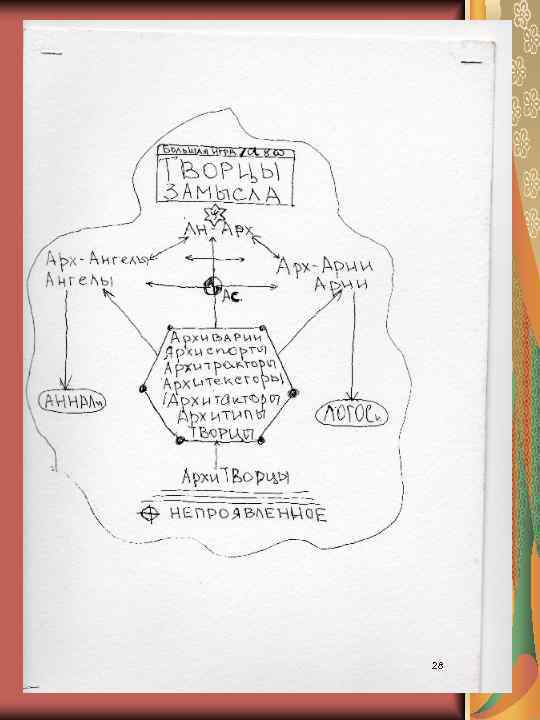 БОЛЬШАЯ ИГРА
ТВОРЦЫ
ЗАМЫСЛА
Ан Арх
Арх-Ангелы
Ангелы
Арх-Арии
Арии
Ас.
Архиварии
Архиспорты
Архитракторы
Архитексторы
Архитакторы
Архитипы
ТВОРЦЫ
АННАЛи
ЛОГОСи
АрхиТВОРЦЫ
НЕПРОЯВЛЕННОЕ
28